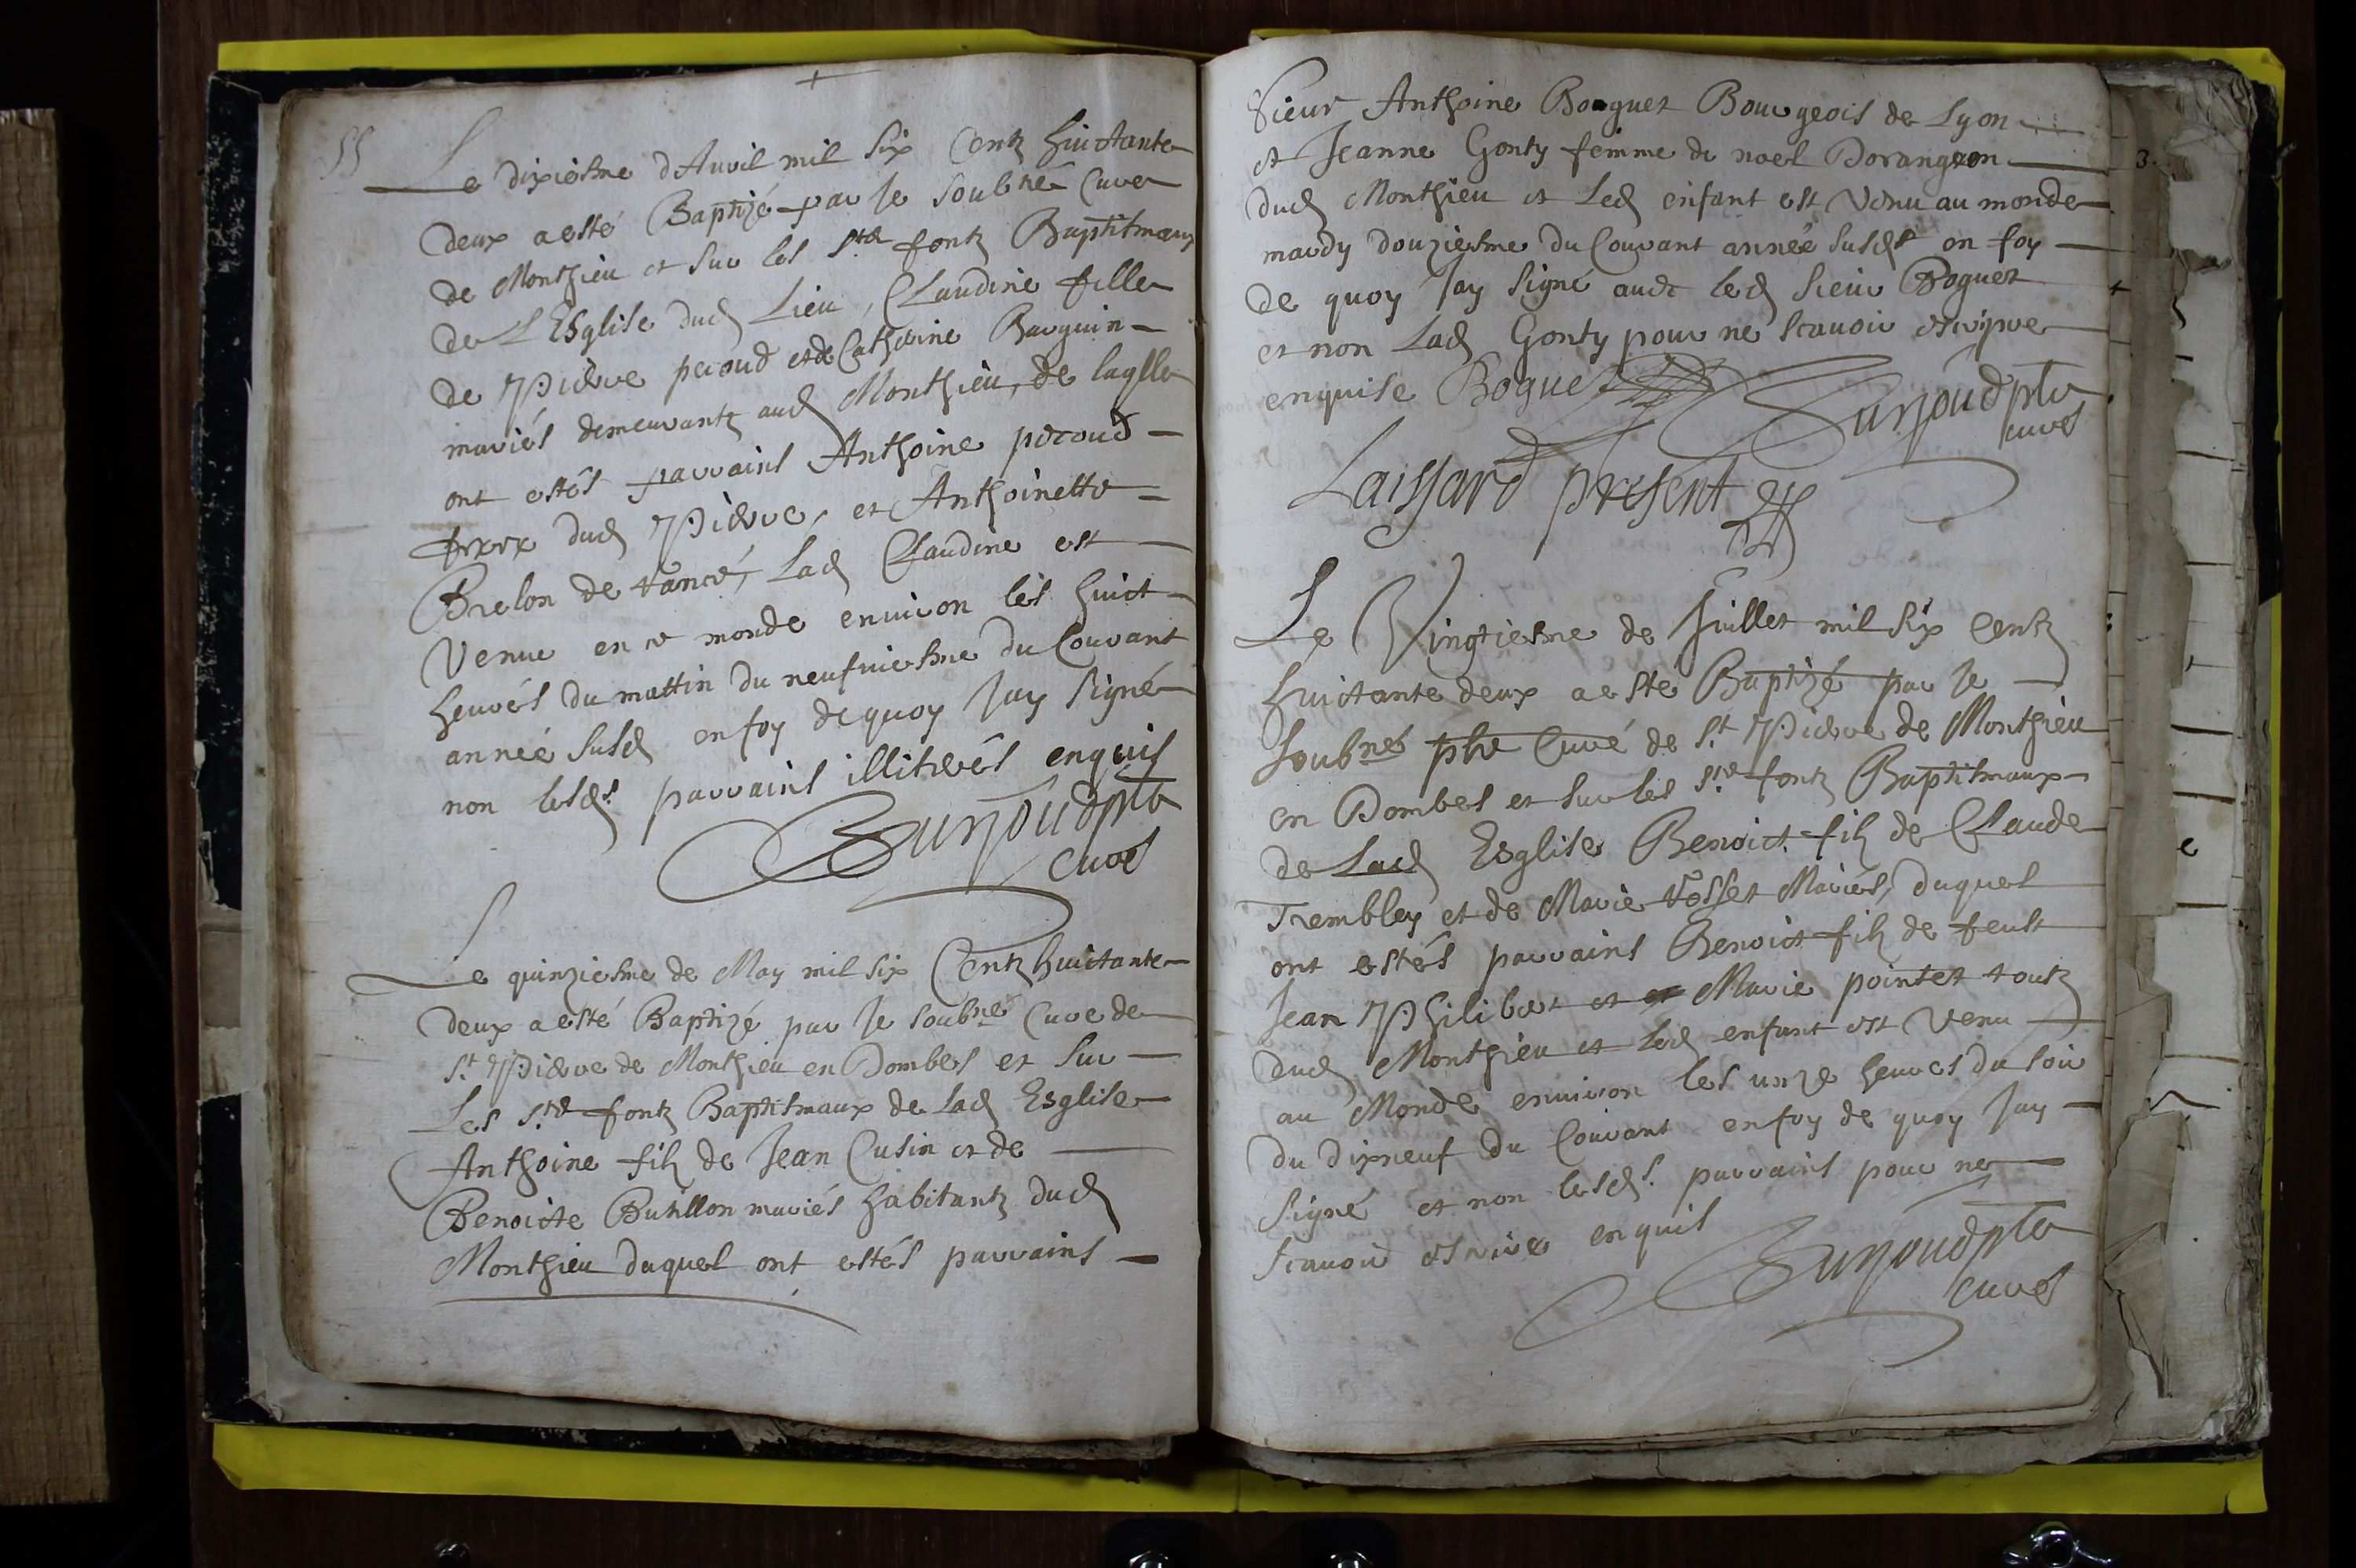 55
Le dixiesme dAuril mil six Centz huictante
deux a esté Baptizé par Je soubné Curé
de Monthieu et sur les Stes fontz Baptismaux
de L'Esglise dud Lieu, Claudine fille
de Pierre peroud et de Catherine Barquin
mariés demeurantz aud Monthieu, de laqlle
ont estés parrains Anthoine peroud
frere dud Pierre, et Anthoinette
Brelon de Lad Claudine est
Venue en ce monde enuiron les huict
heures du mattin du neufuiesme du Courant
année susd en foy de quoy Jay signé
non lesds. parrains illiterés enquis
curé
Le quinziesme de May mil six Centz huictante
deux a esté Baptizé par Je soubné Curé de
St Pierre de Monthieu en Dombes et sur
Les Stes fontz Baptismaux de Lad Esglise
Anthoine filz de Jean Cusin et de
Benoicte Butillon mariés habitantz dud
Monthieu duquel ont estés parrains
Sieur Anthoine Boguet Bourgeois de Lyon
et Jeanne Gonty femme de noel Dorangeon
dud Monthieu et Led enfant est Venu au monde
mardy douziesme du Courant année susdt en foy
de quoy Jay signé auec led sieur Boguet
et non Lad Gonty pour ne scauoir escripre
enquise Boguet
curé
Laissard present
Le Vingtiesme de Juillet mil six Centz
huictante deux a esté Baptizé par Je
soubné pbre Curé de St Pierre de Monthieu
en Dombes et sur les Stes fontz Baptismaux
de Lad Esglise Benoict filz de Claude
Trembley et de Marie Mariés, duquel
ont estés parrains Benoict filz de feust
Jean Philibert et et Marie pointet toutz
dud Monthieu et Led enfant est Venu
au Monde enuiron les unze heures du soir
du dixneuf du Courant en foy de quoy Jay
signé et non lesds. parrains pour ne
scauoir escrire enquis
curé